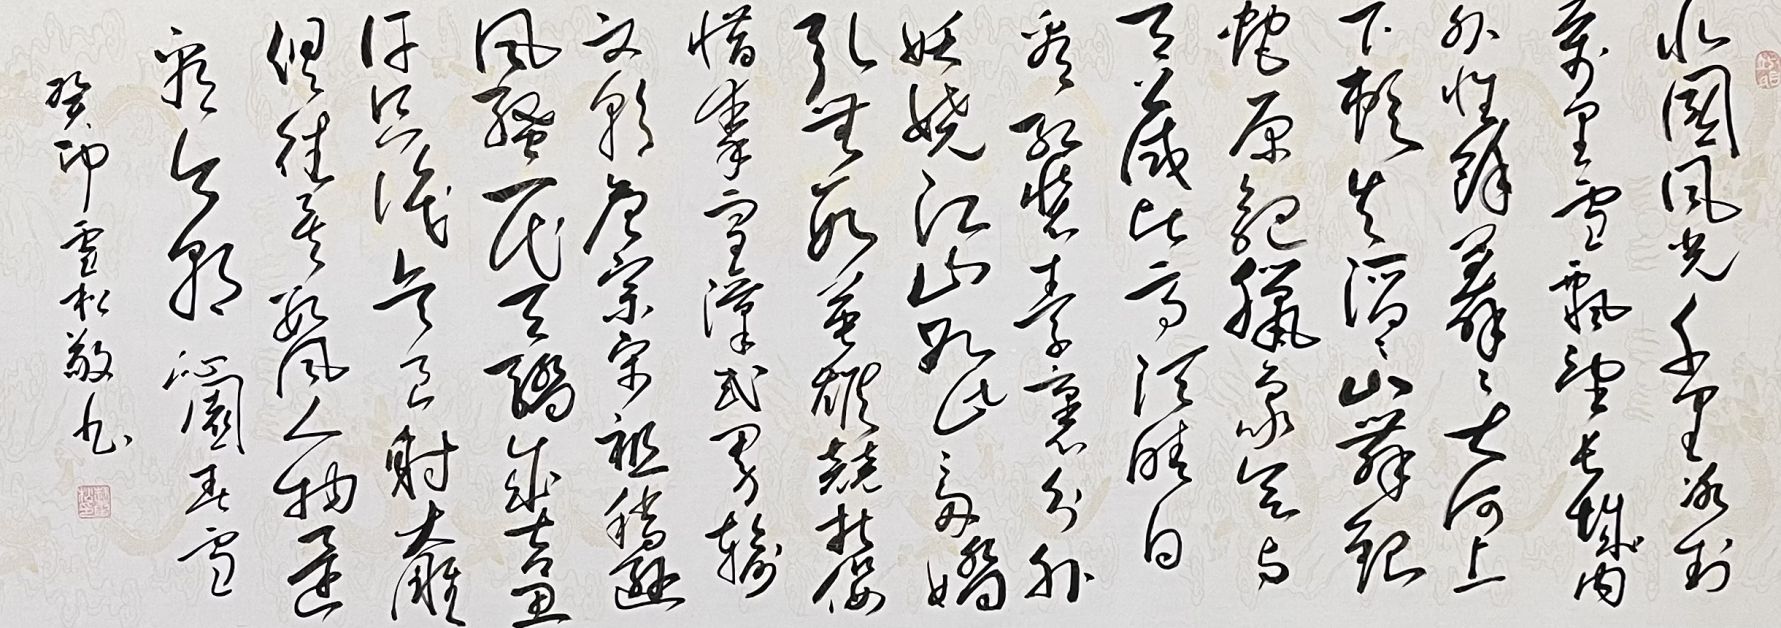 北国风光千里冰封
万里雪飘望长城内
外惟馀莽莽大河上
下顿失滔滔山舞银
蛇原驰腊象欲与
天公试比高须晴日
看红装素裹分外
妖娆江山如此多娇
引无数英雄竞折腰
惜秦皇汉武略输
文采唐宗宋祖稍逊
风骚一代天骄成吉思
汗只识弯弓射大雕
俱往矣数风流人物还
看今朝 沁园春雪
癸卯雪松敬书